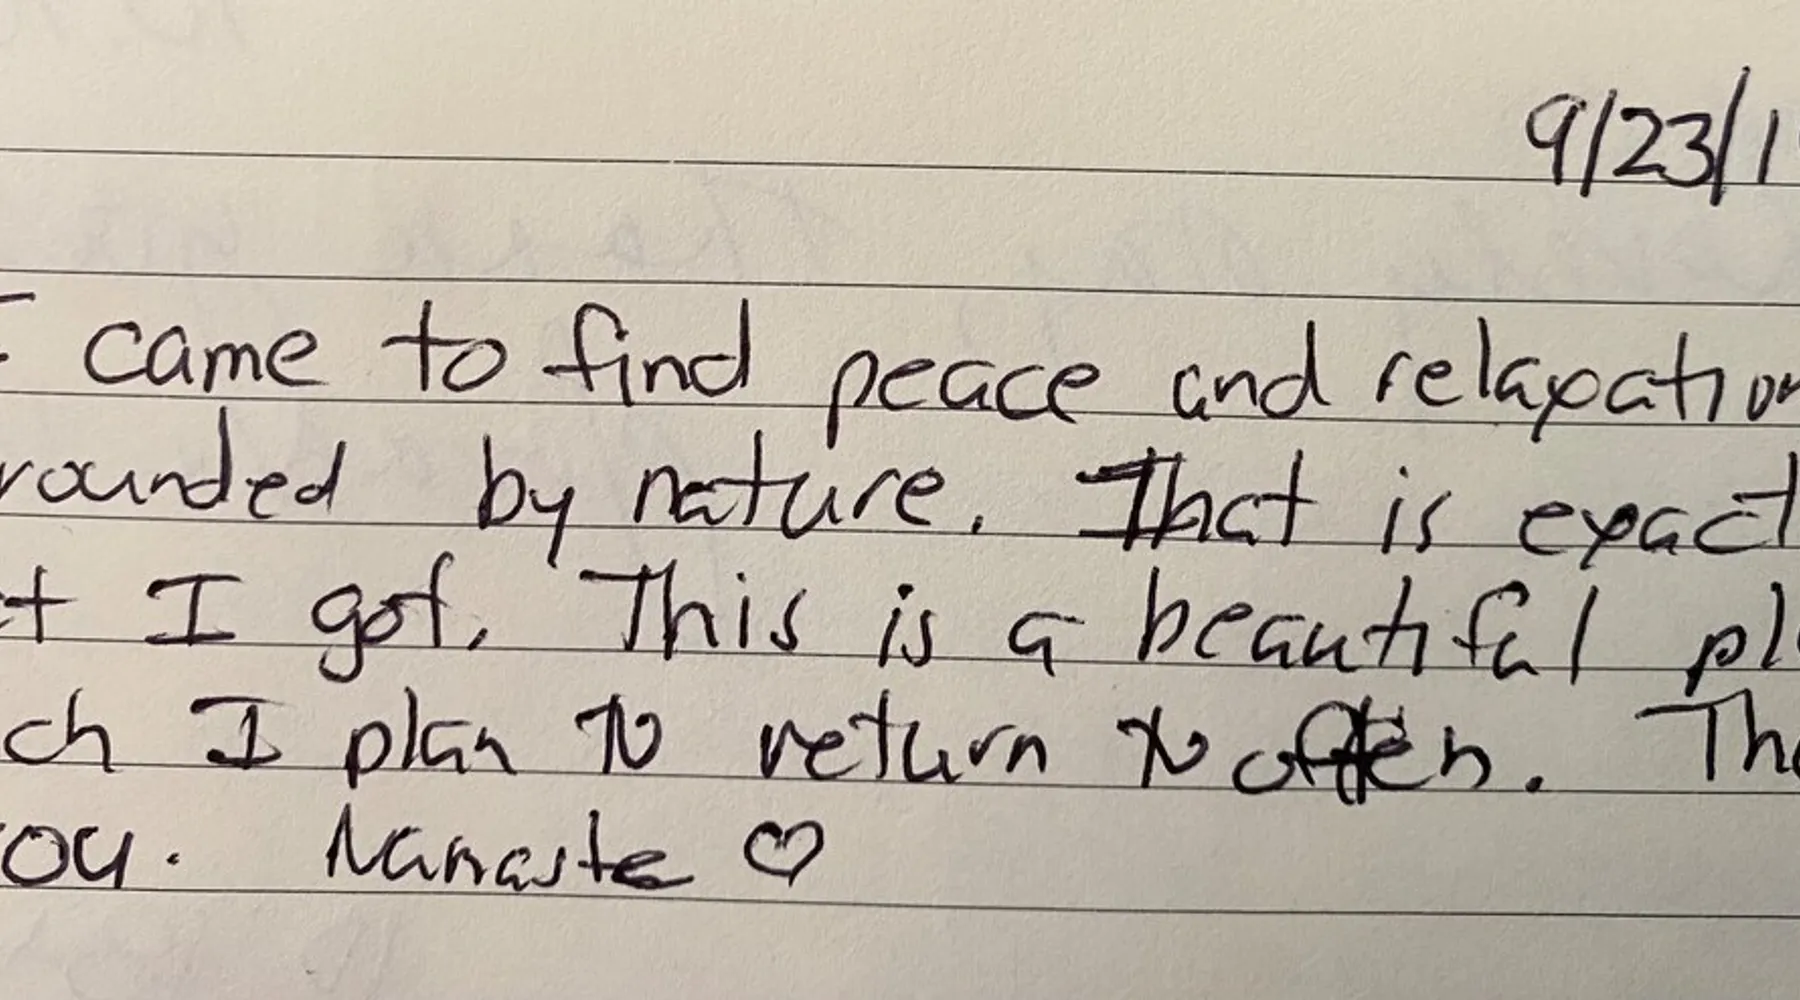 9/23/1
I came to find peace and relaxation
rounded by nature. That is exact
t I got. This is a beautiful pl
ch I plan to return to often. Tha
ou. Namaste ♡